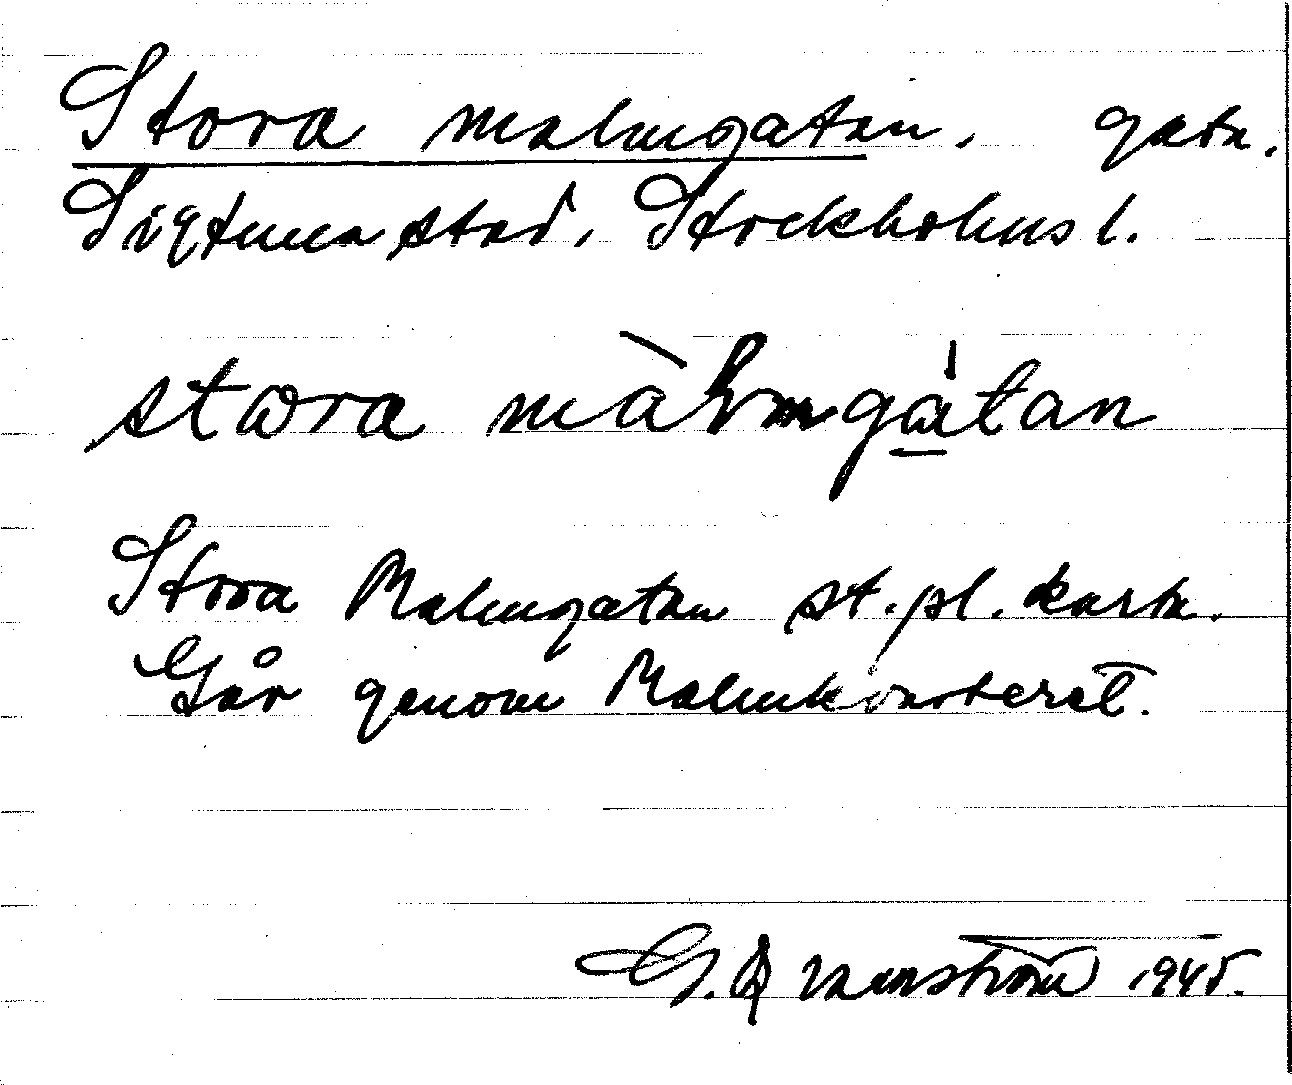 Stora malmgatan. gata.
Sigtuna stad. Stockholms l.
stωra màlmga̍tan
Stora Malmgatan st.pl. karta.
Går genom Malmkvarteret.
G. Qvarnström 1945.